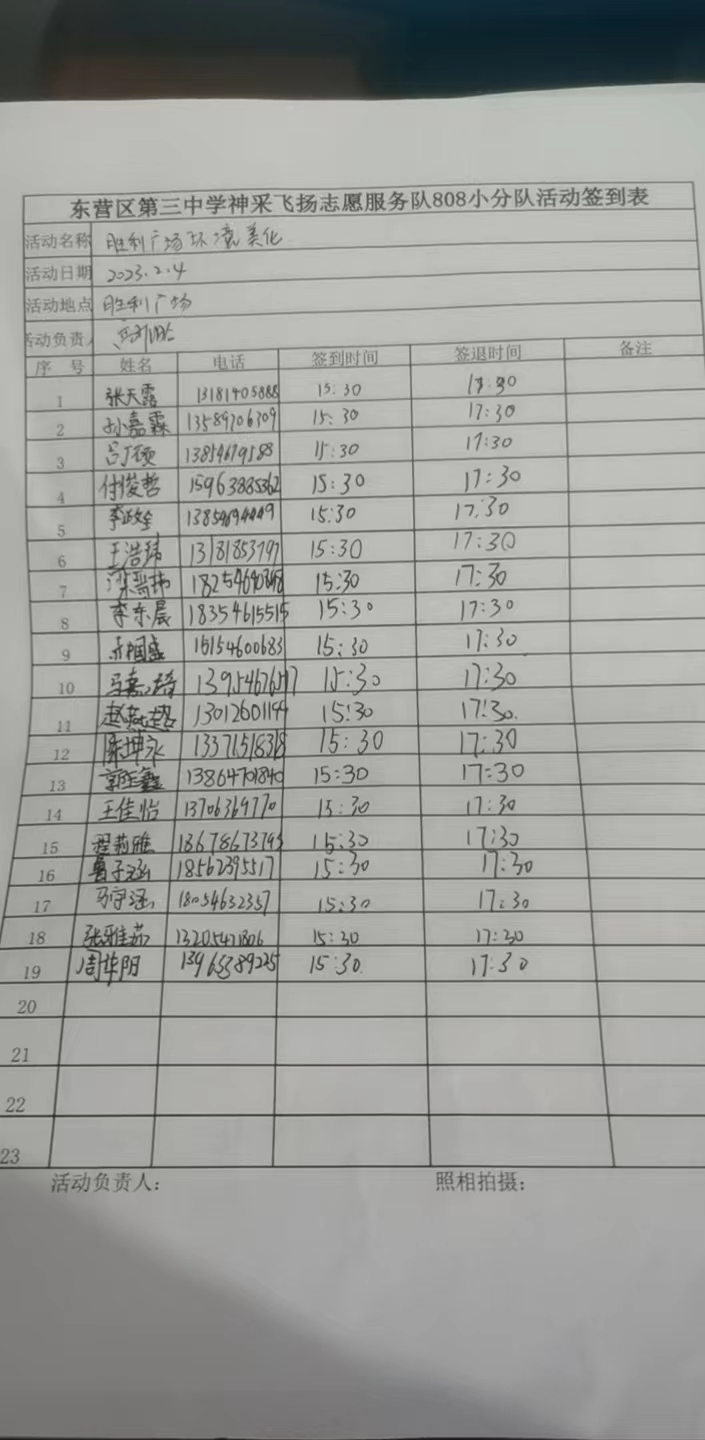 东营区第三中学神采飞扬志愿服务队808小分队活动签到表
活动名称 胜利广场环境美化
活动日期 2023.2.4
活动地点 胜利广场
活动负责人
序 号 姓名 电话 签到时间 签退时间 备注
1 张天露 13181405888 15:30 17:30
2 孙嘉霖 13589706709 15:30 17:30
3 吕广硕 13854679588 15:30 17:30
4 付俊哲 15963885362 15:30 17:30
5 15:30 17:30
6 王浩玮 13181853797 15:30 17:30
7 15:30 17:30
8 李东晨 18354615515 15:30 17:30
9 15154600683 15:30 17:30
10 15:30 17:30
11 15:30 17:30.
12 陈坤永 15:30 17:30
13 13864701840 15:30 17:30
14 王佳怡 13706369770 15:30 17:30
15 程莉雅 15:30 17:30
16 鲁子涵 18562395517 15:30 17:30
17 马宇涵 18054632357 15:30 17:30
18 张雅茹 15:30 17:30
19 周华阳 15:30. 17:30
20
21
22
23
活动负责人: 照相拍摄: